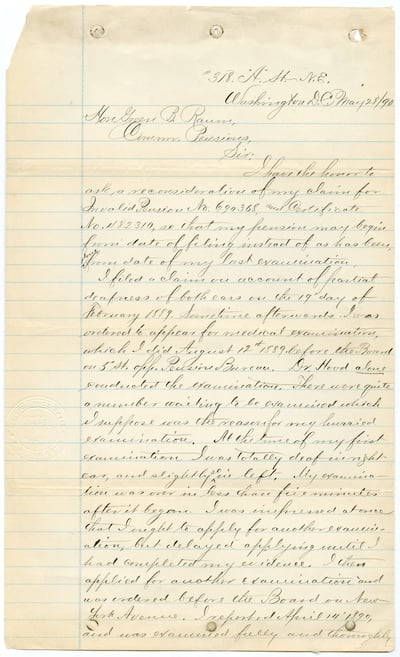 "518." "A." St. N.E.
Washington D.C. May 28/90
Hon. Green B. Raum,
Comm. Pensions,
Sir:
I have the honor to
ask a reconsideration of my claim for
Invalid Pension No. 690368 and Certificate
No. 482310, so that my pension may begin
from date of filing instead of as has been
from date of my last examination.
I filed a claim on account of partial
deafness of both ears on the 19" day of
February 1889. Sometime afterwards I was
ordered to appear for medical examination,
which I did August 12th 1889 before the Board
on 5" St. opp. Pension Bureau. Dr. Hood alone
conducted the examination. There were quite
a number waiting to be examined which
I suppose was the reason for my hurried
examination. At the time of my first
examination I was totally deaf in right
ear, and slightly so in left. My examina-
tion was over in less than five minutes
after it began. I was impressed at once
that I ought to apply for another examin-
ation, but delayed applying until I
had completed my evidence. I then
applied for another examination and
was ordered before the Board on New
York Avenue. I reported April 14" 1890,
and was examined fully and thoroughly